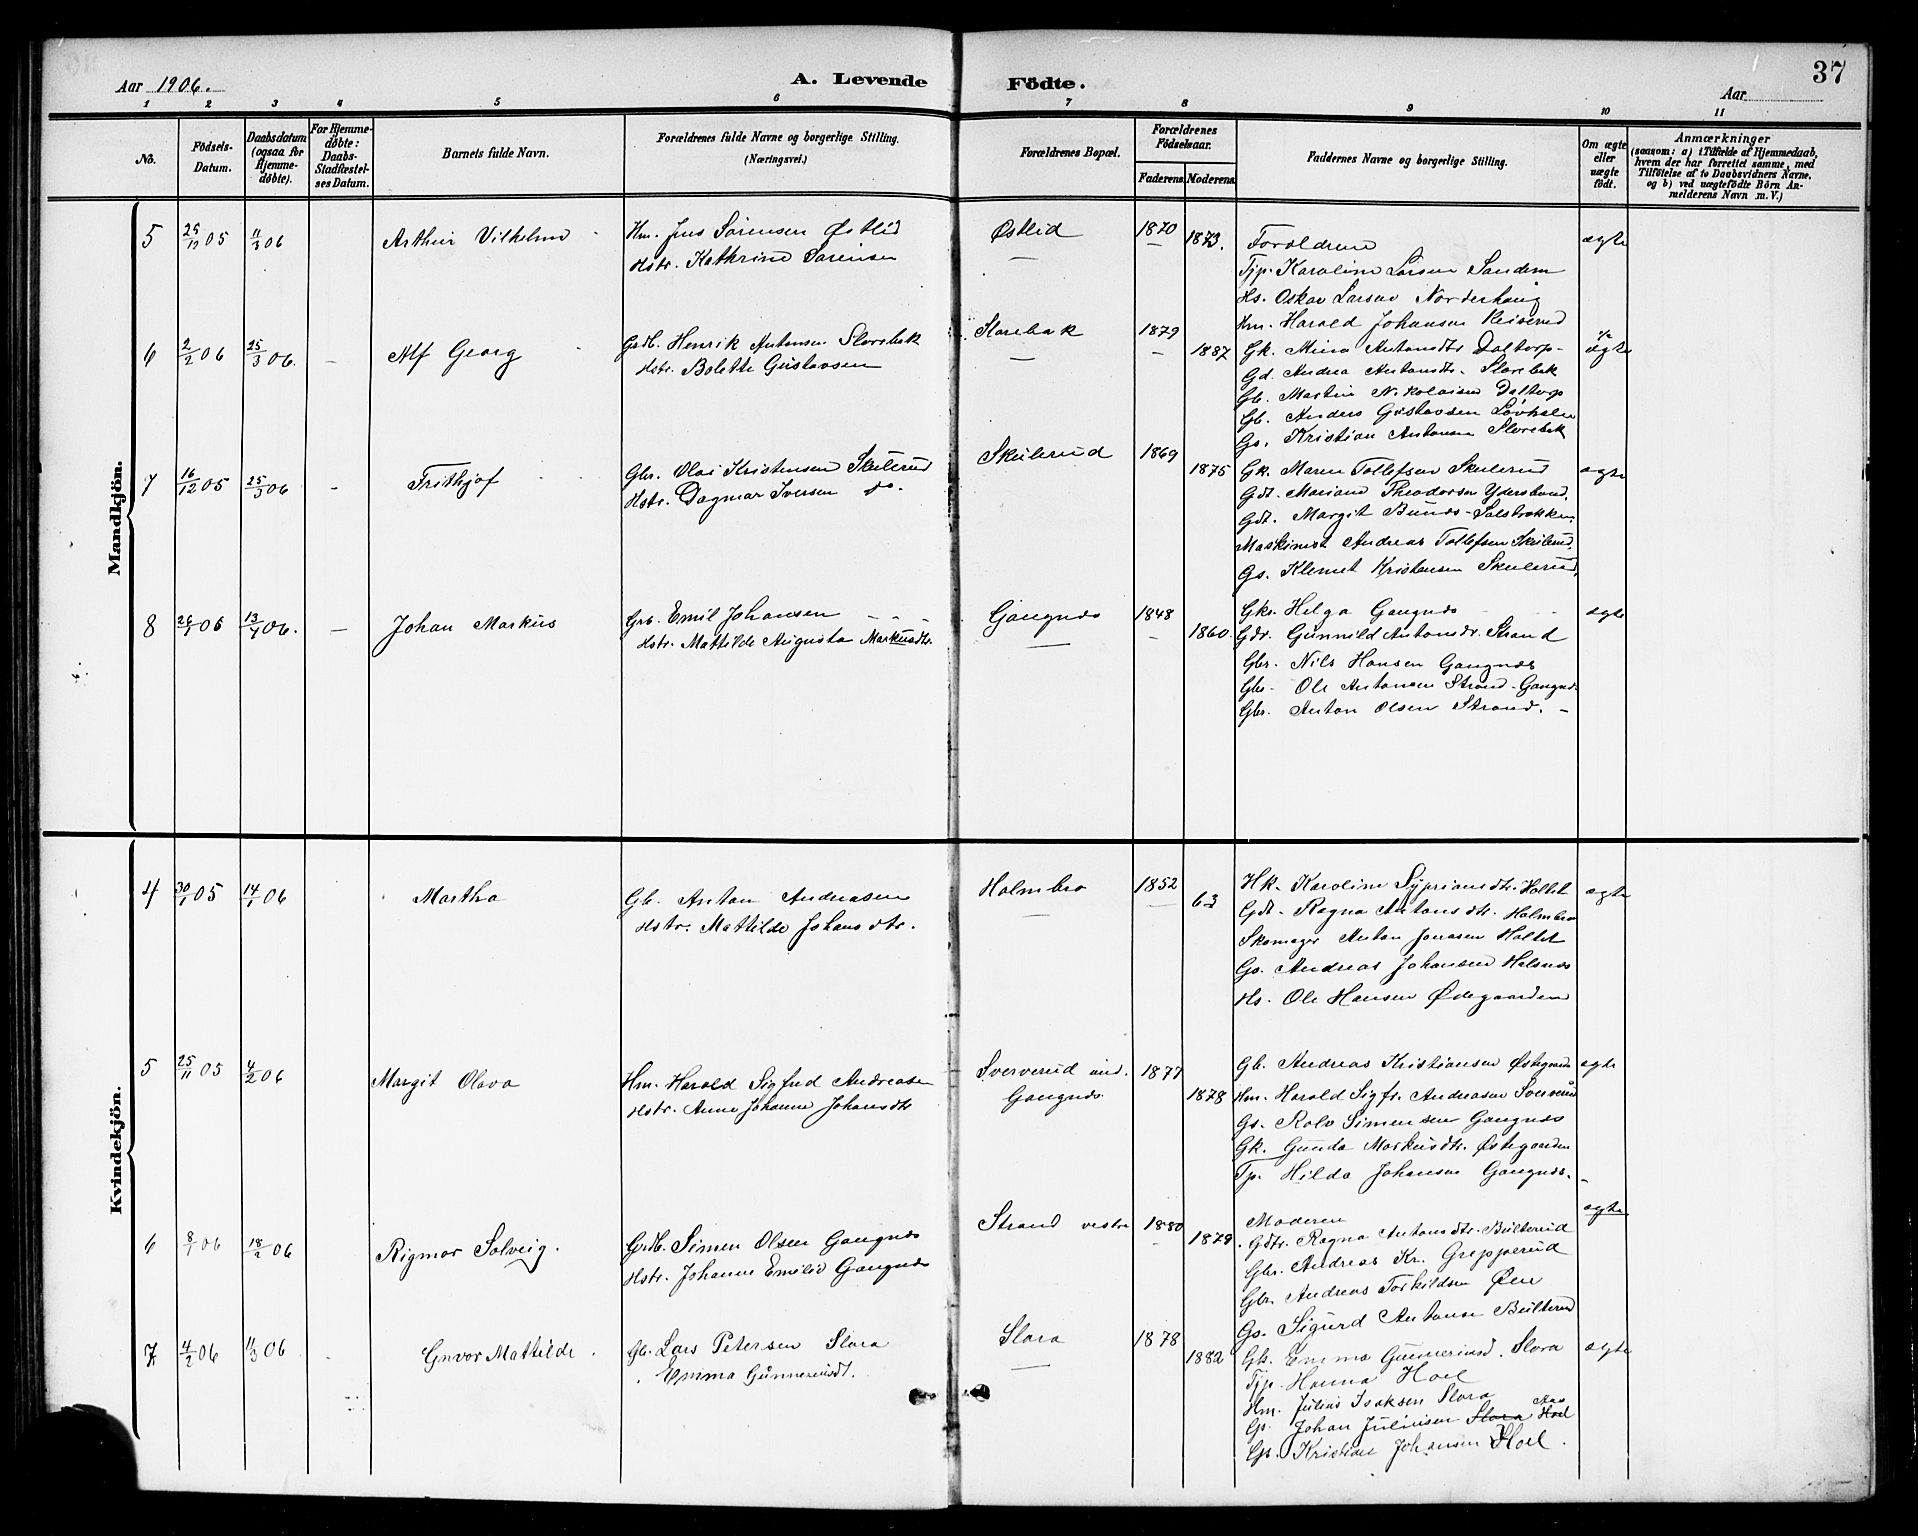 Aar 1906.
A. Levende Födte.
37
Aar
1 2 3 4 5 6 7 8 9 10 11
No.
Födsels-Datum.
Daabsdatum (ogsaa for Hjemme-döbte).
For Hjemme-döbte: Daabs-Stadfæstel-ses Datum.
Barnets fulde Navn.
Forældrenes fulde Navne og borgerlige Stilling.
(Næringsvei.)
Forældrenes Bopæl.
Forældrenes Födselsaar.
Faderens. Moderens.
Faddernes Navne og borgerlige Stilling.
Om ægte eller uægte födt.
Anmærkninger
(saasom: a) i Tilfælde af Hjemmedaab, hvem der har forrettet samme, med Tilföielse af to Daabsvidners Navne, og b) ved uægtefödte Börn An-melderens Navn m. V.)
Mandkjön.
5 25/11 05 11/3 06 Arthur Vilhelm
Hm. Jens Sørensen Østlid
Hstr. Kathrine Sørensen
Østlid 1870 1873.
Foreldrene
Tjp. Karoline Larsen Sandem
Hs. Oskar Larsen Norderhaug
Hm. Harald Johansen Reiserud
ægte
6 2/2 06 25/3 06. – Alf Georg
Gdb. Henrik Antonsen Slorebak
Hstr. Bolette Gustavsen
Slorebak 1879 1887
Gk. Mina Antonsdtr Daltorp
Gd. Andrea Antonsdtr. Slorebak
Gb. Martin Nikolaisen Daltorp
Gb. Anders Gustavsen Løvhølen
Gs. Kristian Antonsen Slorebak
ægte
7 16/12 05 25/3 06 – Frithjof
Gbr. Olai Kristensen Skulerud
Hstr. Dagmar Iversen do.
Skulerud 1869 1875
Gk. Maren Tollefsen Skulerud
Gdt. Mariane Theodorsen Ydersbond.
Gdt. Margit Bunæs-Solsbrekken.
Maskinist Andreas Tollefsen Skulerud.
Gs. Klemet Kristensen Skulerud.
ægte
8 26/1 06 13/4 06. – Johan Markus
Grb. Emil Johansen
Hstr. Mathilde Augusta Markusdtr.
Gangnæs 1848 1860.
Gks. Helga Gangnæs
Gdr. Gunnild Antonsdr. Strand
Gbr. Nils Hansen Gangnæs
Gbr. Ole Antonsen Strand-Gangnæs
Gbr. Anton Olsen Strand.
ægte
Kvindekjön.
4 30/1 05 14/1 06 Martha
Gb. Anton Andreasen
Hstr. Mathilde Johansdtr.
Holmbro 1852 63
Hk. Karoline Sypriandtr. Holtet
Gdt. Ragna Antonsdtr. Holmbro
Skomager Anton Jonasen Holtet
Gs. Andreas Johansen Holsnæs
Hs. Ole Hansen Ødegaarden
ægte
5 25/11 05 4/2 06 Margit Olava
Hm. Harald Sigfred Andreasen
Hstr. Anne Johanne Johansdtr
Sververud und. Gangnæs 1877 1878
Gb. Andreas Kristiansen Østegaarden
Hm. Harald Sigfr. Andreasen Sververud
Gs. Rolv Simensen Gangnæs
Gk. Gunda Markusdtr. Østegaarden
Tp. Hilda Johansen Gangnæs.
ægte
6 8/1 06 18/2 06 Rigmor Solveig.
Gdb. Simen Olsen Gangnæs
Hstr. Johanne Emilie Gangnæs
Strand vestre 1880 1879
Moderen
Gdtr. Ragna Antonsdtr. Bulterud
Gbr. Andreas Kr. Gripperud
Gbr. Andreas Torkildsen Øen
Gs. Sigurd Antonsen Bulterud
ægte
7 4/2 06 11/3 06 Gunvor Mathilde.
Gb. Lars Petersen Slora
Emma Gunneriusdt.
Slora 1878 1882
Gk. Emma Gunneriusd. Slora
Tjp. Hanna Hoel
Hm. Julius Isaksen Slora
Gs. Johan Juliusen Slora Aas Hoel
Gs. Kristian Johansen Hoel.
ægte